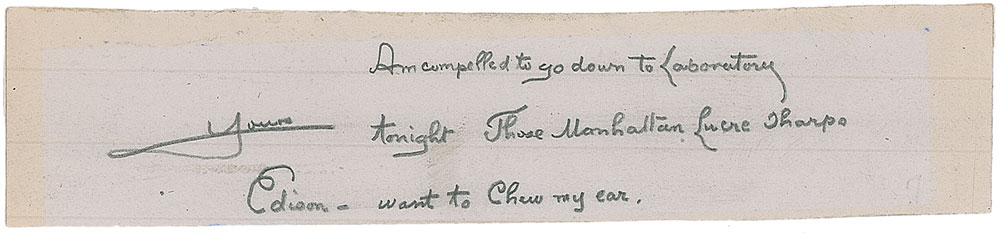 Am compelled to go down to Laboratory
tonight Those Manhattan Lucre Sharps
want to Chew my ear.
Yours
Edison –